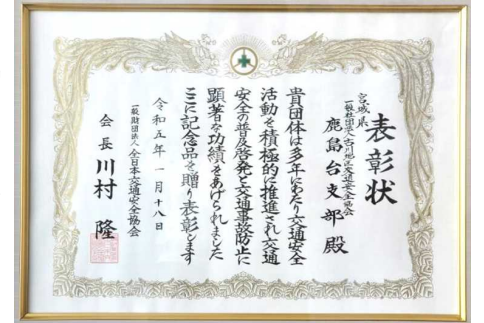 表彰状
宮城県
一般社団法人古川地区交通安全協会
鹿島台支部 殿
貴団体は多年にわたり交通安全
活動を積極的に推進され交通
安全の普及啓発と交通事故防止に
顕著な功績をあげられました
ここに記念品を贈り表彰します
令和五年一月十八日
一般財団法人全日本交通安全協会
会長 川村 隆